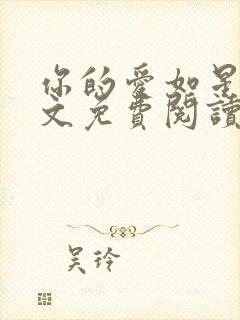 你的愛如星
文免費閱讀
吴玲